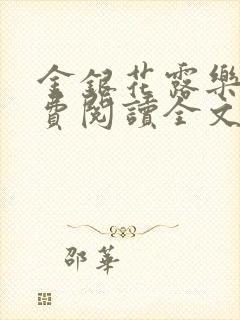 金銀花露樂
費閱讀全文
邵華